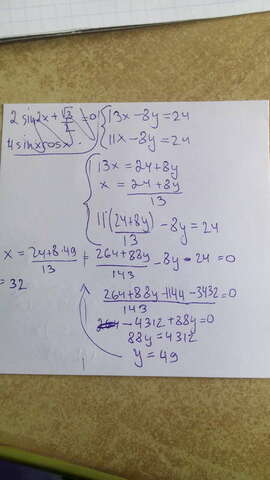 2 sin2x + √3/2 = 0
4 sinxcosx
{ 13x - 8y = 24
11x - 8y = 24
{ 13x = 24+8y
x = (24+8y)/13
11(24+8y)/13 - 8y = 24
x = (24+8·49)/13 = 32
(264+88y)/143 - 8y - 24 = 0
(264+88y-1144-3432)/143 = 0
-4312+88y=0
88y=4312
y=49